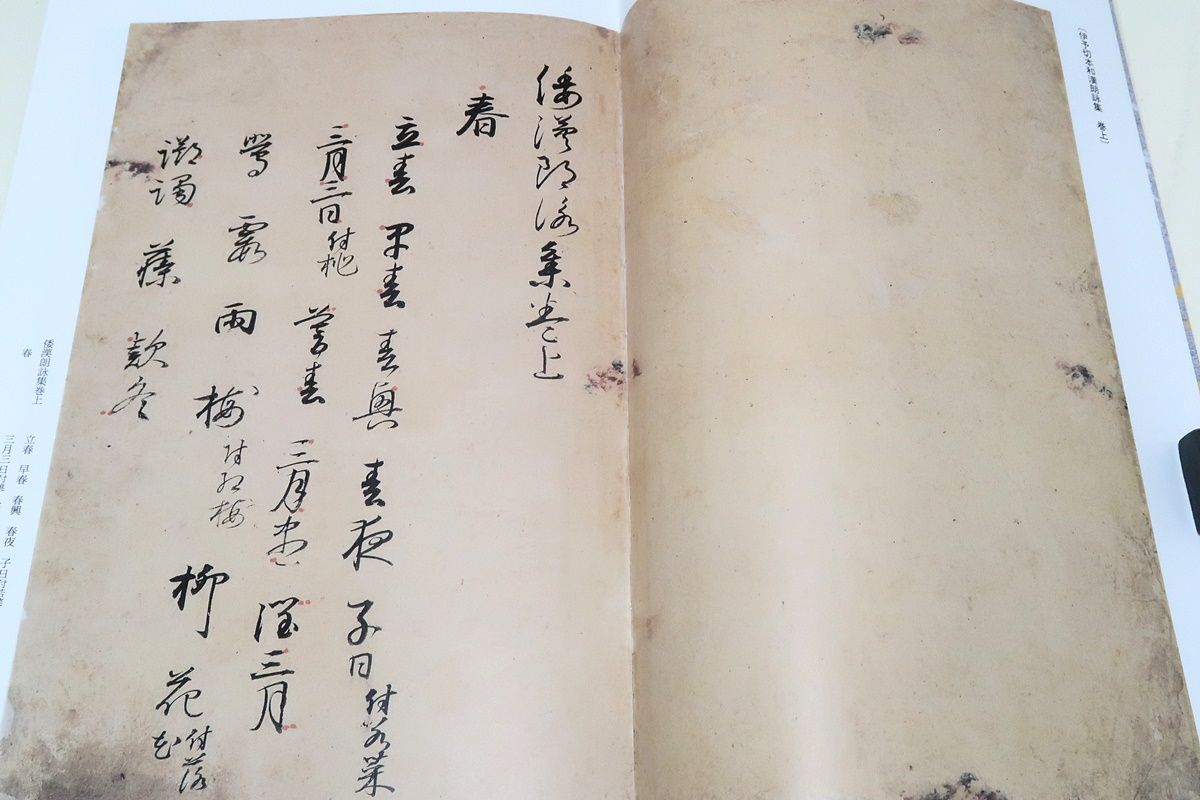 （伊予切本和漢朗詠集　巻上）
倭漢朗詠集巻上
春
立春　早春　春興　春夜　子日付若菜
三月三日付桃　暮春　三月尽　閏三月
鶯　霞　雨　梅付紅梅　柳　花付落花
躑躅　藤　款冬
倭漢朗詠集巻上
春
立春　早春　春興　春夜　子日付若菜
三月三日付